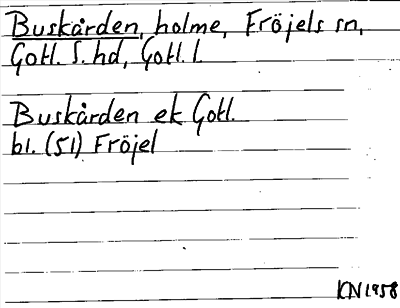 Buskården, holme, Fröjels sn,
Gotl. S. hd, Gotl. l.
Buskården ek Gotl.
bl. (51) Fröjel
KN 1958